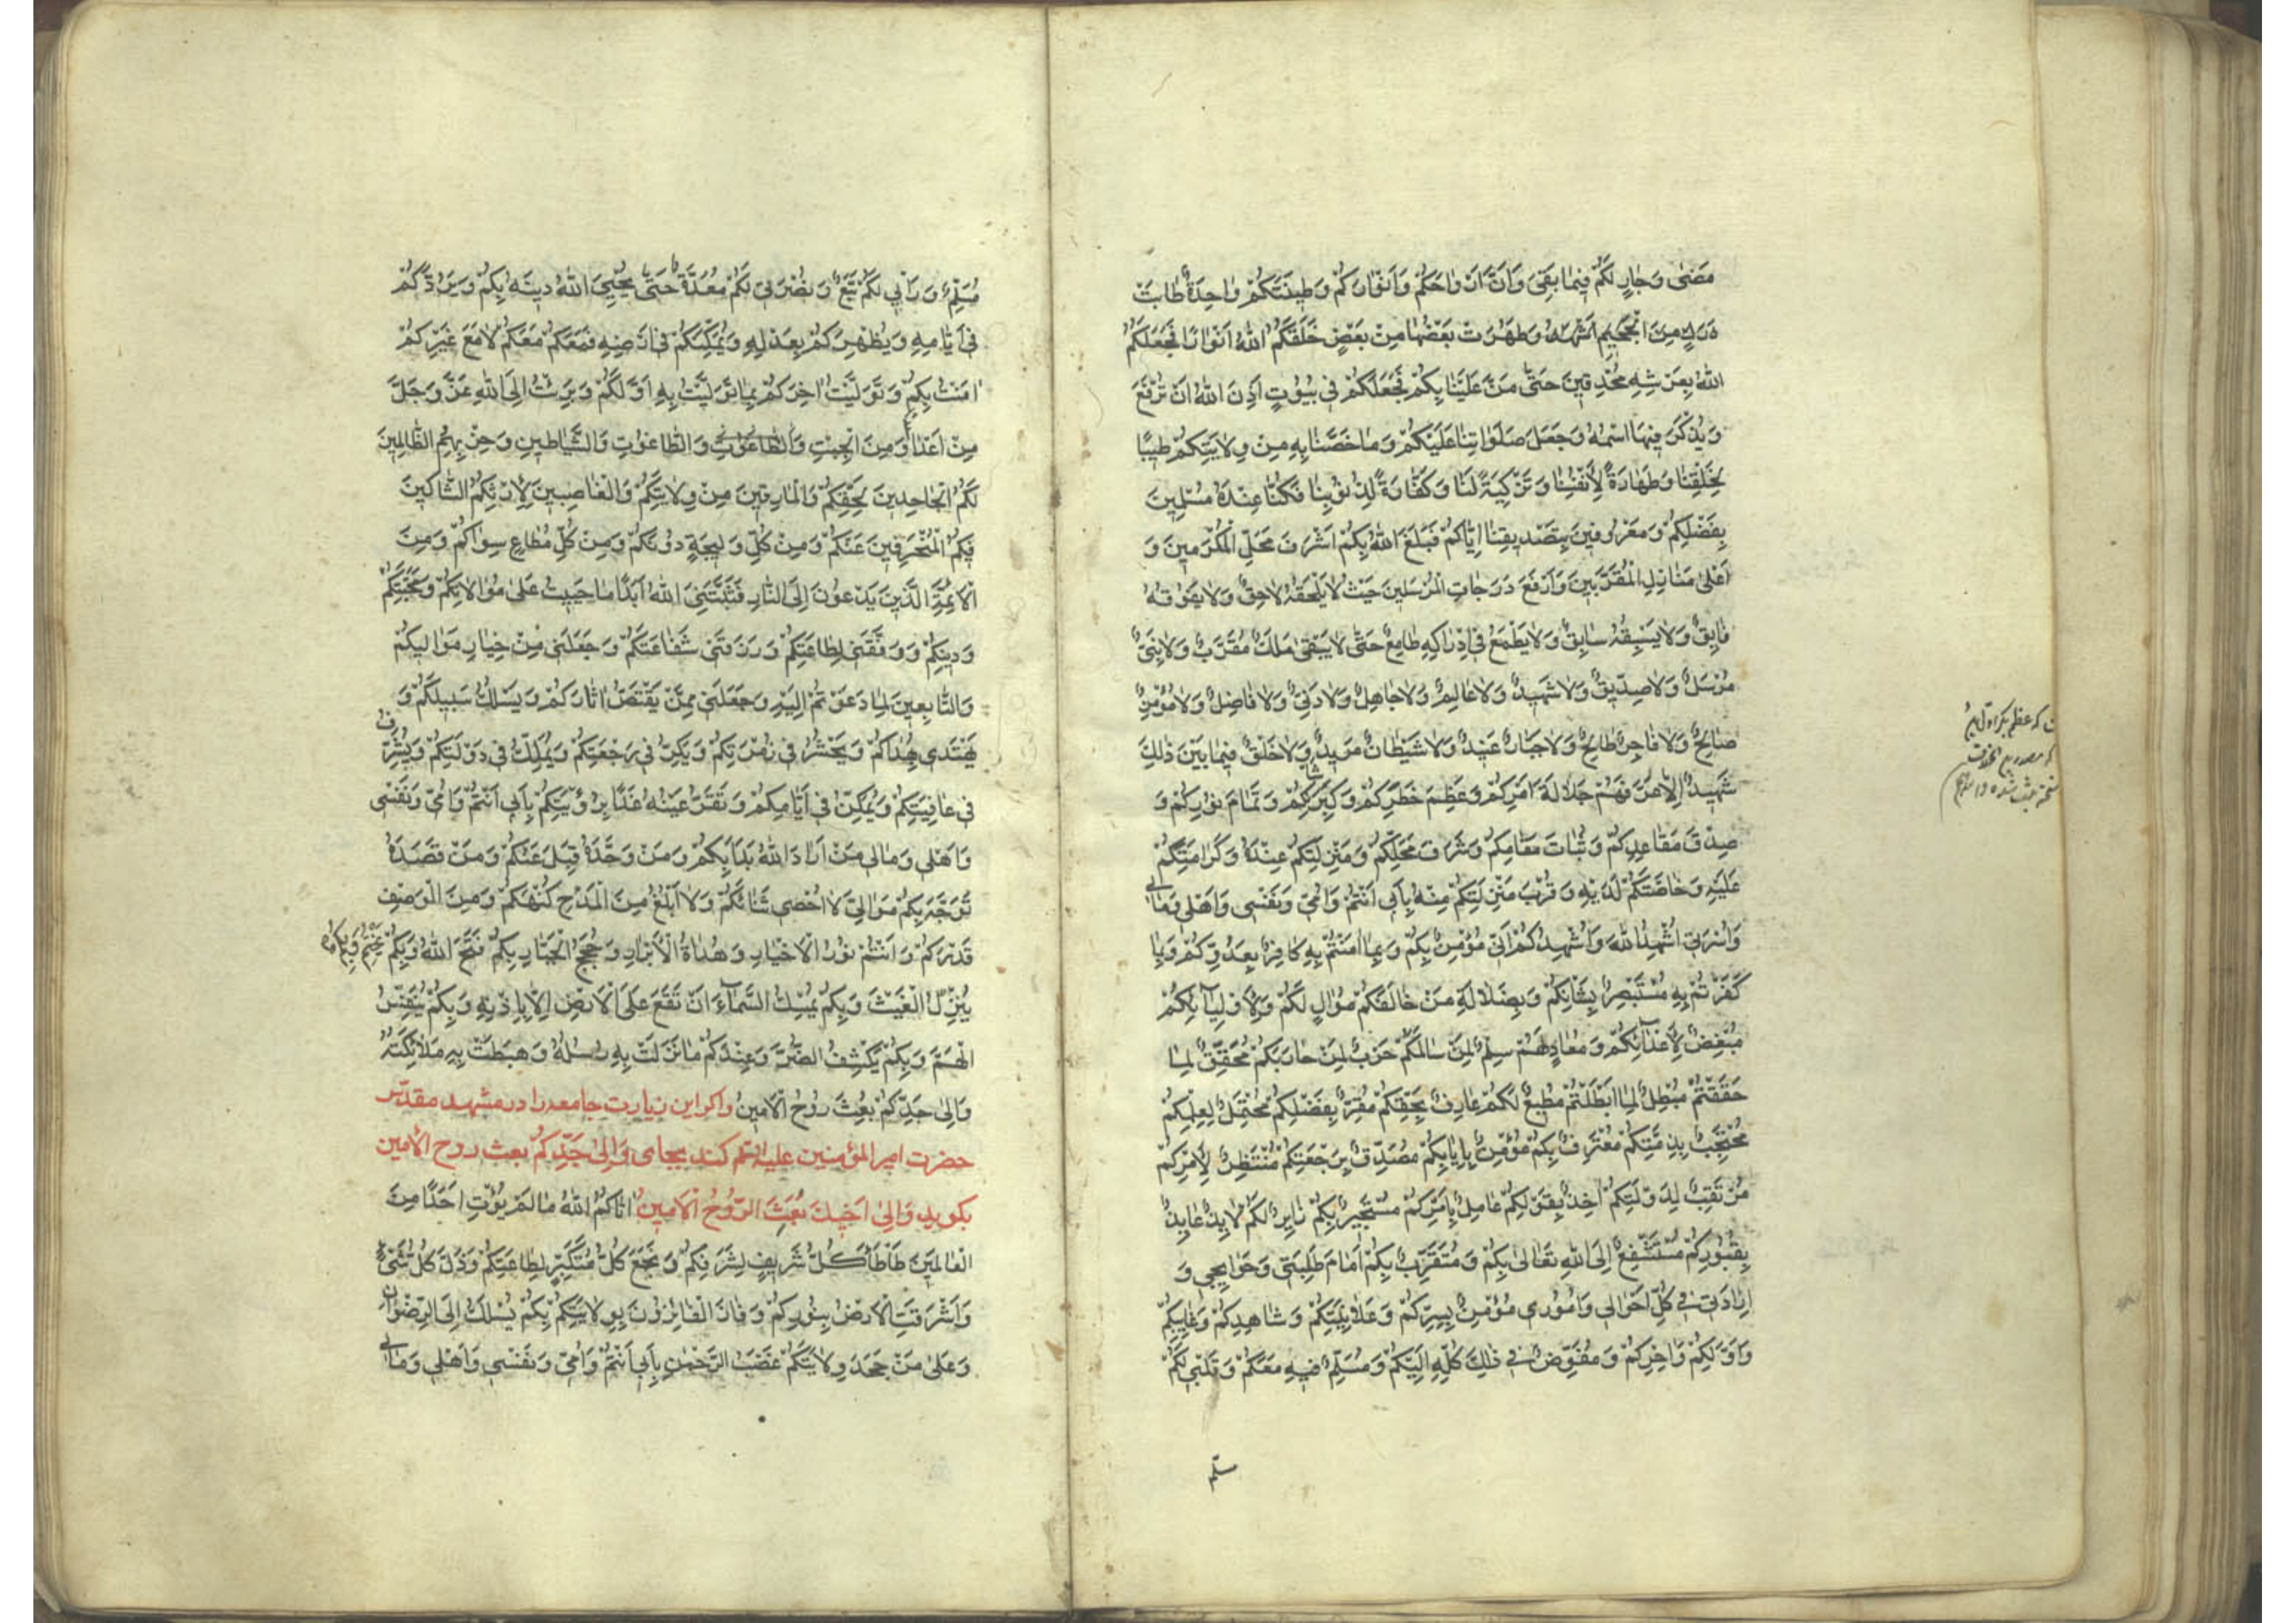 مَضىٰ وَجٰارٍ لَكُمْ فيمٰا بَقِىَ وَاَنَّ اَرْوٰاحَكُمْ وَاَنْوٰارَكُمْ وَطينَتَكُمْ وٰاحِدَةٌ طٰابَتْ
وَطَهُرَتْ بَعْضُهٰا مِنْ بَعْضٍ خَلَقَكُمُ اللهُ اَنْوٰارًا فَجَعَلَكُمُ
اللهُ بِعَرْشِهِ مُحْدِقينَ حَتّىٰ مَنَّ عَلَيْنٰا بِكُمْ فَجَعَلَكُمْ فى بُيُوتٍ اَذِنَ اللهُ اَنْ تُرْفَعَ
وَيُذْكَرَ فيهَا اسْمُهُ وَجَعَلَ صَلَوٰاتِنٰا عَلَيْكُمْ وَمٰا خَصَّنٰا بِهِ مِنْ وِلٰايَتِكُمْ طيبًا
لِخَلْقِنٰا وَطَهٰارَةً لِاَنْفُسِنٰا وَتَزْكِيَةً لَنٰا وَكَفّٰارَةً لِذُنُوبِنٰا فَكُنّٰا عِنْدَهُ مُسَلِّمينَ
بِفَضْلِكُمْ وَمَعْرُوفينَ بِتَصْديقِنٰا اِيّٰاكُمْ فَبَلَغَ اللهُ بِكُمْ اَشْرَفَ مَحَلِّ الْمُكَرَّمينَ وَ
اَعْلىٰ مَنٰازِلِ الْمُقَرَّبينَ وَاَرْفَعَ دَرَجٰاتِ الْمُرْسَلينَ حَيْثُ لٰا يَلْحَقُهُ لٰاحِقٌ وَلٰا يَفُوقُهُ
فٰايِقٌ وَلٰا يَسْبِقُهُ سٰابِقٌ وَلٰا يَطْمَعُ فى اِدْرٰاكِهِ طٰامِعٌ حَتّىٰ لٰا يَبْقىٰ مَلَكٌ مُقَرَّبٌ وَلٰا نَبِىٌّ
مُرْسَلٌ وَلٰا صِدّيقٌ وَلٰا شَهيدٌ وَلٰا عٰالِمٌ وَلٰا جٰاهِلٌ وَلٰا دَنِىٌّ وَلٰا فٰاضِلٌ وَلٰا مُؤْمِنٌ
صٰالِحٌ وَلٰا فٰاجِرٌ طٰالِحٌ وَلٰا جَبّٰارٌ عَنيدٌ وَلٰا شَيْطٰانٌ مَريدٌ وَلٰا خَلْقٌ فيمٰا بَيْنَ ذٰلِكَ
شَهيدٌ اِلّٰا عَرَّفَهُمْ جَلٰالَةَ اَمْرِكُمْ وَعِظَمَ خَطَرِكُمْ وَكِبَرَ شَأنِكُمْ وَتَمٰامَ نُورِكُمْ وَ
صِدْقَ مَقٰاعِدِكُمْ وَثُبٰاتَ مَقٰامِكُمْ وَشَرَفَ مَحَلِّكُمْ وَمَنْزِلَتِكُمْ عِنْدَهُ وَكَرٰامَتِكُمْ
عَلَيْهِ وَخٰاصَّتَكُمْ لَدَيْهِ وَقُرْبَ مَنْزِلَتِكُمْ مِنْهُ بِاَبى اَنْتُمْ وَاُمّى وَنَفْسى وَاَهْلى وَمٰالى
وَاُسْرَتى اُشْهِدُ اللهَ وَاُشْهِدُكُمْ اَنّى مُؤْمِنٌ بِكُمْ وَبِمٰا اٰمَنْتُمْ بِهِ كٰافِرٌ بِعَدُوِّكُمْ وَبِمٰا
كَفَرْتُمْ بِهِ مُسْتَبْصِرٌ بِشَأنِكُمْ وَبِضَلٰالَةِ مَنْ خٰالَفَكُمْ مُوٰالٍ لَكُمْ وَلِاَوْلِيٰآئِكُمْ
مُبْغِضٌ لِاَعْدٰآئِكُمْ وَمُعٰادٍ لَهُمْ سِلْمٌ لِمَنْ سٰالَمَكُمْ حَرْبٌ لِمَنْ حٰارَبَكُمْ مُحَقِّقٌ لِمٰا
حَقَّقْتُمْ مُبْطِلٌ لِمٰا اَبْطَلْتُمْ مُطيعٌ لَكُمْ عٰارِفٌ بِحَقِّكُمْ مُقِرٌّ بِفَضْلِكُمْ مُحْتَمِلٌ لِعِلْمِكُمْ
مُحْتَجِبٌ بِذِمَّتِكُمْ مُعْتَرِفٌ بِكُمْ مُؤْمِنٌ بِاِيٰابِكُمْ مُصَدِّقٌ بِرَجْعَتِكُمْ مُنْتَظِرٌ لِاَمْرِكُمْ
مُرْتَقِبٌ لِدَوْلَتِكُمْ اٰخِذٌ بِقَوْلِكُمْ عٰامِلٌ بِاَمْرِكُمْ مُسْتَجيرٌ بِكُمْ زٰايِرٌ لَكُمْ لٰايِذٌ عٰايِذٌ
بِقُبُورِكُمْ مُسْتَشْفِعٌ اِلَى اللهِ تَعٰالىٰ بِكُمْ وَمُتَقَرِّبٌ بِكُمْ اَمٰامَ طَلِبَتى وَحَوٰايِجى وَ
اِرٰادَتى فى كُلِّ اَحْوٰالى وَاُمُورى مُؤْمِنٌ بِسِرِّكُمْ وَعَلٰانِيَتِكُمْ وَشٰاهِدِكُمْ وَغٰايِبِكُمْ
وَاَوَّلِكُمْ وَاٰخِرِكُمْ وَمُفَوِّضٌ فى ذٰلِكَ كُلِّهِ اِلَيْكُمْ وَمُسَلِّمٌ فيهِ مَعَكُمْ وَقَلْبى لَكُمْ
سلّم
مُسَلِّمٌ وَرَأيى لَكُمْ تَبَعٌ وَنُصْرَتى لَكُمْ مُعَدَّةٌ حَتّىٰ يُحْيِىَ اللهُ دينَهُ بِكُمْ وَيَرُدَّكُمْ
فى اَيّٰامِهِ وَيُظْهِرَكُمْ بِعَدْلِهِ وَيُمَكِّنَكُمْ فى اَرْضِهِ فَمَعَكُمْ مَعَكُمْ لٰا مَعَ غَيْرِكُمْ
اٰمَنْتُ بِكُمْ وَتَوَلَّيْتُ اٰخِرَكُمْ بِمٰا تَوَلَّيْتُ بِهِ اَوَّلَكُمْ وَبَرِئْتُ اِلَى اللهِ عَزَّ وَجَلَّ
مِنْ اَعْدٰائِكُمْ وَمِنَ الْجِبْتِ وَالطّٰاغُوتِ وَالطّٰاغُوتِ وَالشَّيٰاطينِ وَحِزْبِهِمُ الظّٰالِمينَ
لَكُمُ الْجٰاحِدينَ لِحَقِّكُمْ وَالْمٰارِقينَ مِنْ وِلٰايَتِكُمْ وَالْغٰاصِبينَ لِاِرْثِكُمُ الشّٰاكّينَ
فيكُمُ الْمُنْحَرِفينَ عَنْكُمْ وَمِنْ كُلِّ وَليجَةٍ دُونَكُمْ وَمِنْ كُلِّ مُطٰاعٍ سِوٰاكُمْ وَمِنَ
الْاَئِمَّةِ الَّذينَ يَدْعُونَ اِلَى النّٰارِ فَثَبَّتَنِىَ اللهُ اَبَدًا مٰا حَييتُ عَلىٰ مُوٰالٰاتِكُمْ وَمَحَبَّتِكُمْ
وَدينِكُمْ وَوَفَّقَنى لِطٰاعَتِكُمْ وَرَزَقَنى شَفٰاعَتَكُمْ وَجَعَلَنى مِنْ خِيٰارِ مَوٰاليكُمْ
وَالتّٰابِعينَ لِمٰا دَعَوْتُمْ اِلَيْهِ وَجَعَلَنى مِمَّنْ يَقْتَصُّ اٰثٰارَكُمْ وَيَسْلُكُ سَبيلَكُمْ وَ
يَهْتَدى بِهُدٰاكُمْ وَيُحْشَرُ فى زُمْرَتِكُمْ وَيَكِرُّ فى رَجْعَتِكُمْ وَيُمَلَّكُ فى دَوْلَتِكُمْ وَيُشَرَّفُ
فى عٰافِيَتِكُمْ وَيُمَكَّنُ فى اَيّٰامِكُمْ وَتَقَرُّ عَيْنُهُ غَدًا بِرُؤْيَتِكُمْ بِاَبى اَنْتُمْ وَاُمّى وَنَفْسى
وَاَهْلى وَمٰالى مَنْ اَرٰادَ اللهَ بَدَاَ بِكُمْ وَمَنْ وَحَّدَهُ قَبِلَ عَنْكُمْ وَمَنْ قَصَدَهُ
تَوَجَّهَ بِكُمْ مَوٰالِىَّ لٰا اُحْصى ثَنٰائَكُمْ وَلٰا اَبْلُغُ مِنَ الْمَدْحِ كُنْهَكُمْ وَمِنَ الْوَصْفِ
قَدْرَكُمْ وَاَنْتُمْ نُورُ الْاَخْيٰارِ وَهُدٰاةُ الْاَبْرٰارِ وَحُجَجُ الْجَبّٰارِ بِكُمْ فَتَحَ اللهُ وَبِكُمْ يَخْتِمُ وَبِكُمْ
يُنَزِّلُ الْغَيْثَ وَبِكُمْ يُمْسِكُ السَّمٰآءَ اَنْ تَقَعَ عَلَى الْاَرْضِ اِلّٰا بِاِذْنِهِ وَبِكُمْ يُنَفِّسُ
الْهَمَّ وَبِكُمْ يَكْشِفُ الضُّرَّ وَعِنْدَكُمْ مٰا نَزَلَتْ بِهِ رُسُلُهُ وَهَبَطَتْ بِهِ مَلٰائِكَتُهُ
وَاِلىٰ جَدِّكُمْ بُعِثَ رُوحُ الْاَمينُ واكر اين زيارت جامعه را در مشهد مقدّس
حضرت امير المؤمنين عليه‌السّلم كند بجاى وَاِلىٰ جَدِّكُمْ بعث روح الأمين
بكويد وَاِلىٰ اَخيكَ بُعِثَ الرُّوحُ الْاَمينُ اٰتٰاكُمُ اللهُ مٰا لَمْ يُؤْتِ اَحَدًا مِنَ
الْعٰالَمينَ طَأطَأ كُلُّ شَريفٍ لِشَرَفِكُمْ وَبَخَعَ كُلُّ مُتَكَبِّرٍ لِطٰاعَتِكُمْ وَذَلَّ كُلُّ شَىْءٍ
وَاَشْرَقَتِ الْاَرْضُ بِنُورِكُمْ وَفٰازَ الْفٰائِزُونَ بِوِلٰايَتِكُمْ بِكُمْ يُسْلَكُ اِلَى الرِّضْوٰانِ
وَعَلىٰ مَنْ جَحَدَ وِلٰايَتَكُمْ غَضَبُ الرَّحْمٰنِ بِاَبى اَنْتُمْ وَاُمّى وَنَفْسى وَاَهْلى وَمٰالى